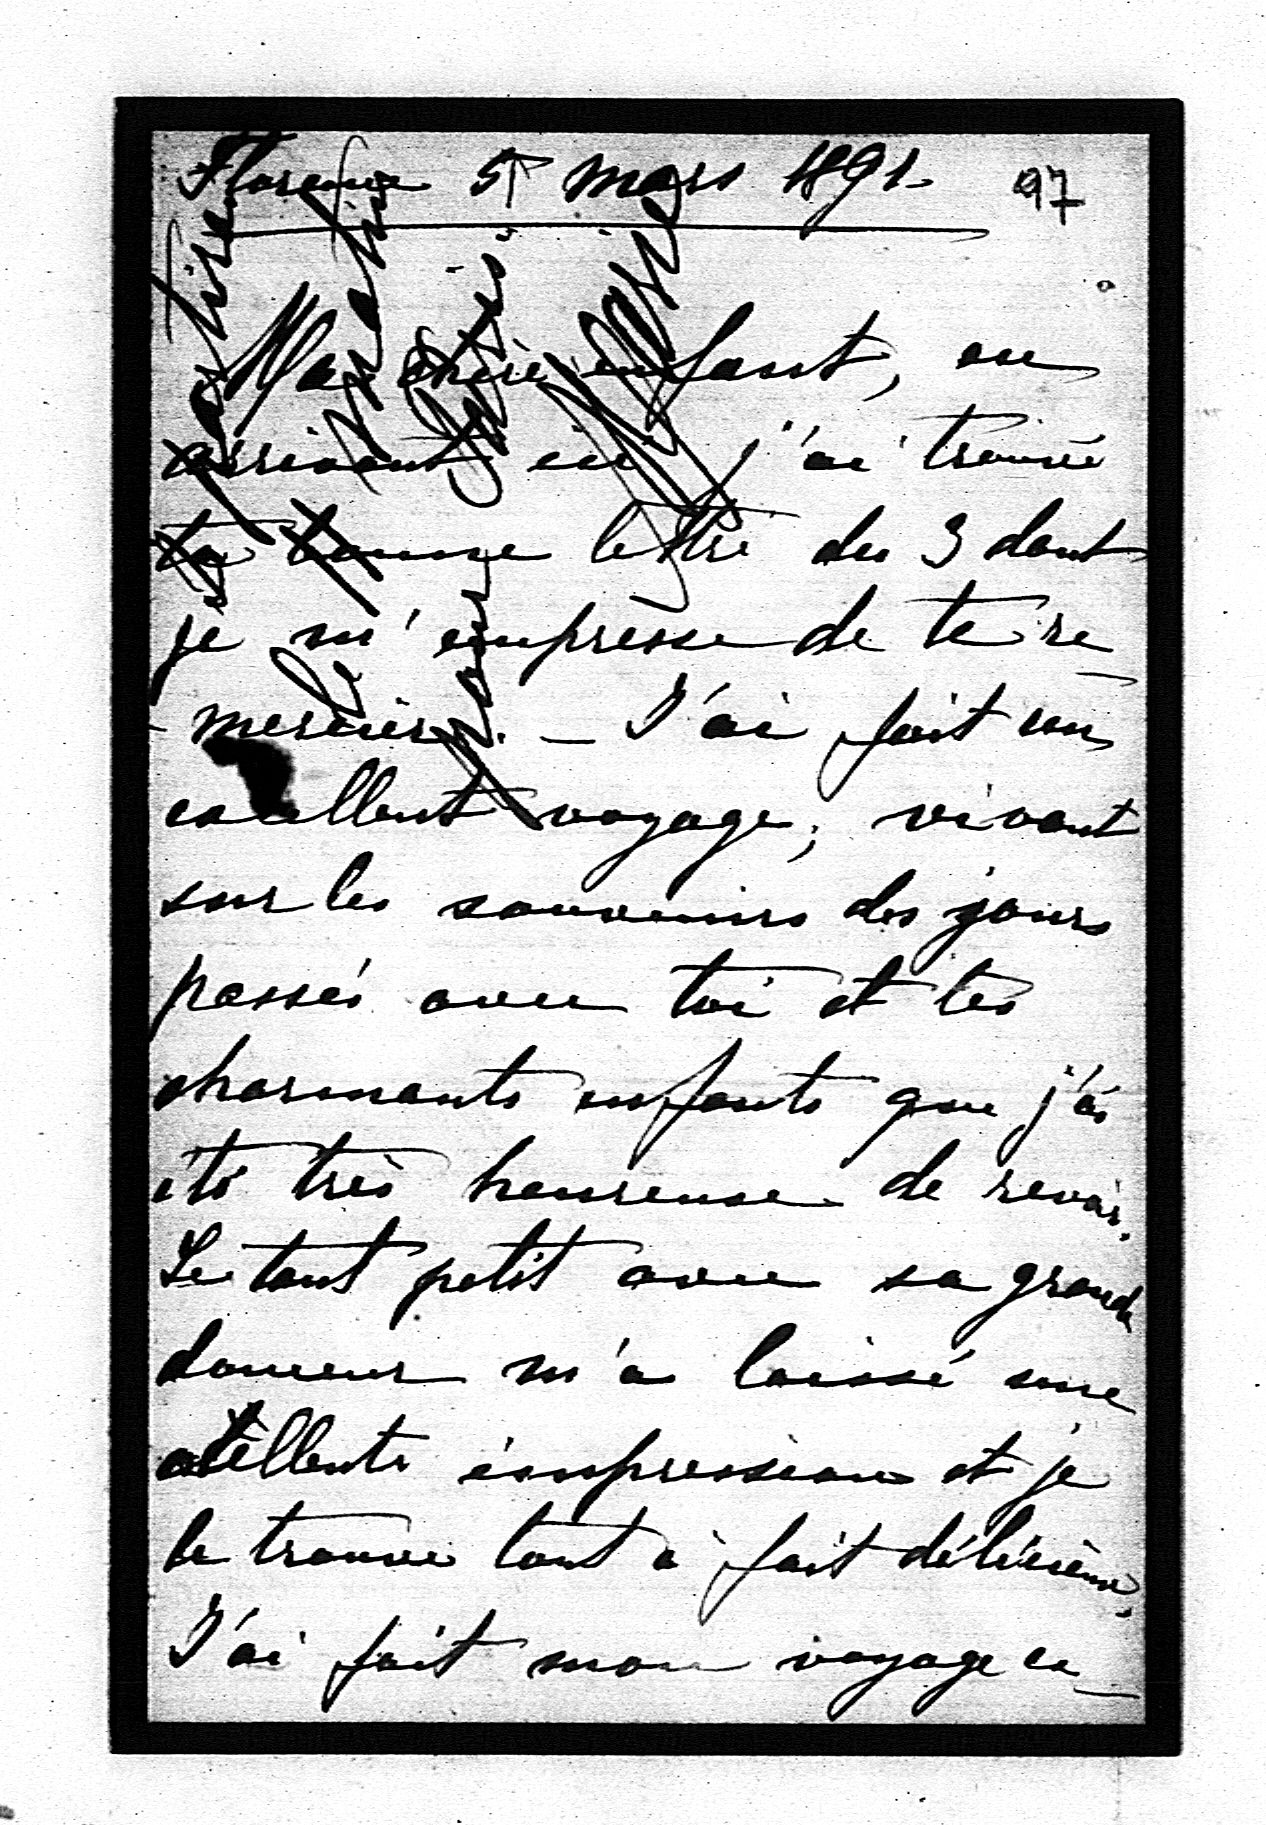 Florence 5 mars 1891.
97
Ma chère enfant, en
arrivant ici j'ai trouvé
ta bonne lettre du 3 dont
je m'empresse de te re_
_mercier. _ J'ai fait un
excellent voyage, vivant
sur les souvenirs des jours
passés avec toi et tes
charmants enfants que j'ai
été très heureuse de revoir.
Le tout petit avec sa grande
douceur m'a laissé une
excellente impression et je
le trouve tout à fait délicieux.
J'ai fait mon voyage en_